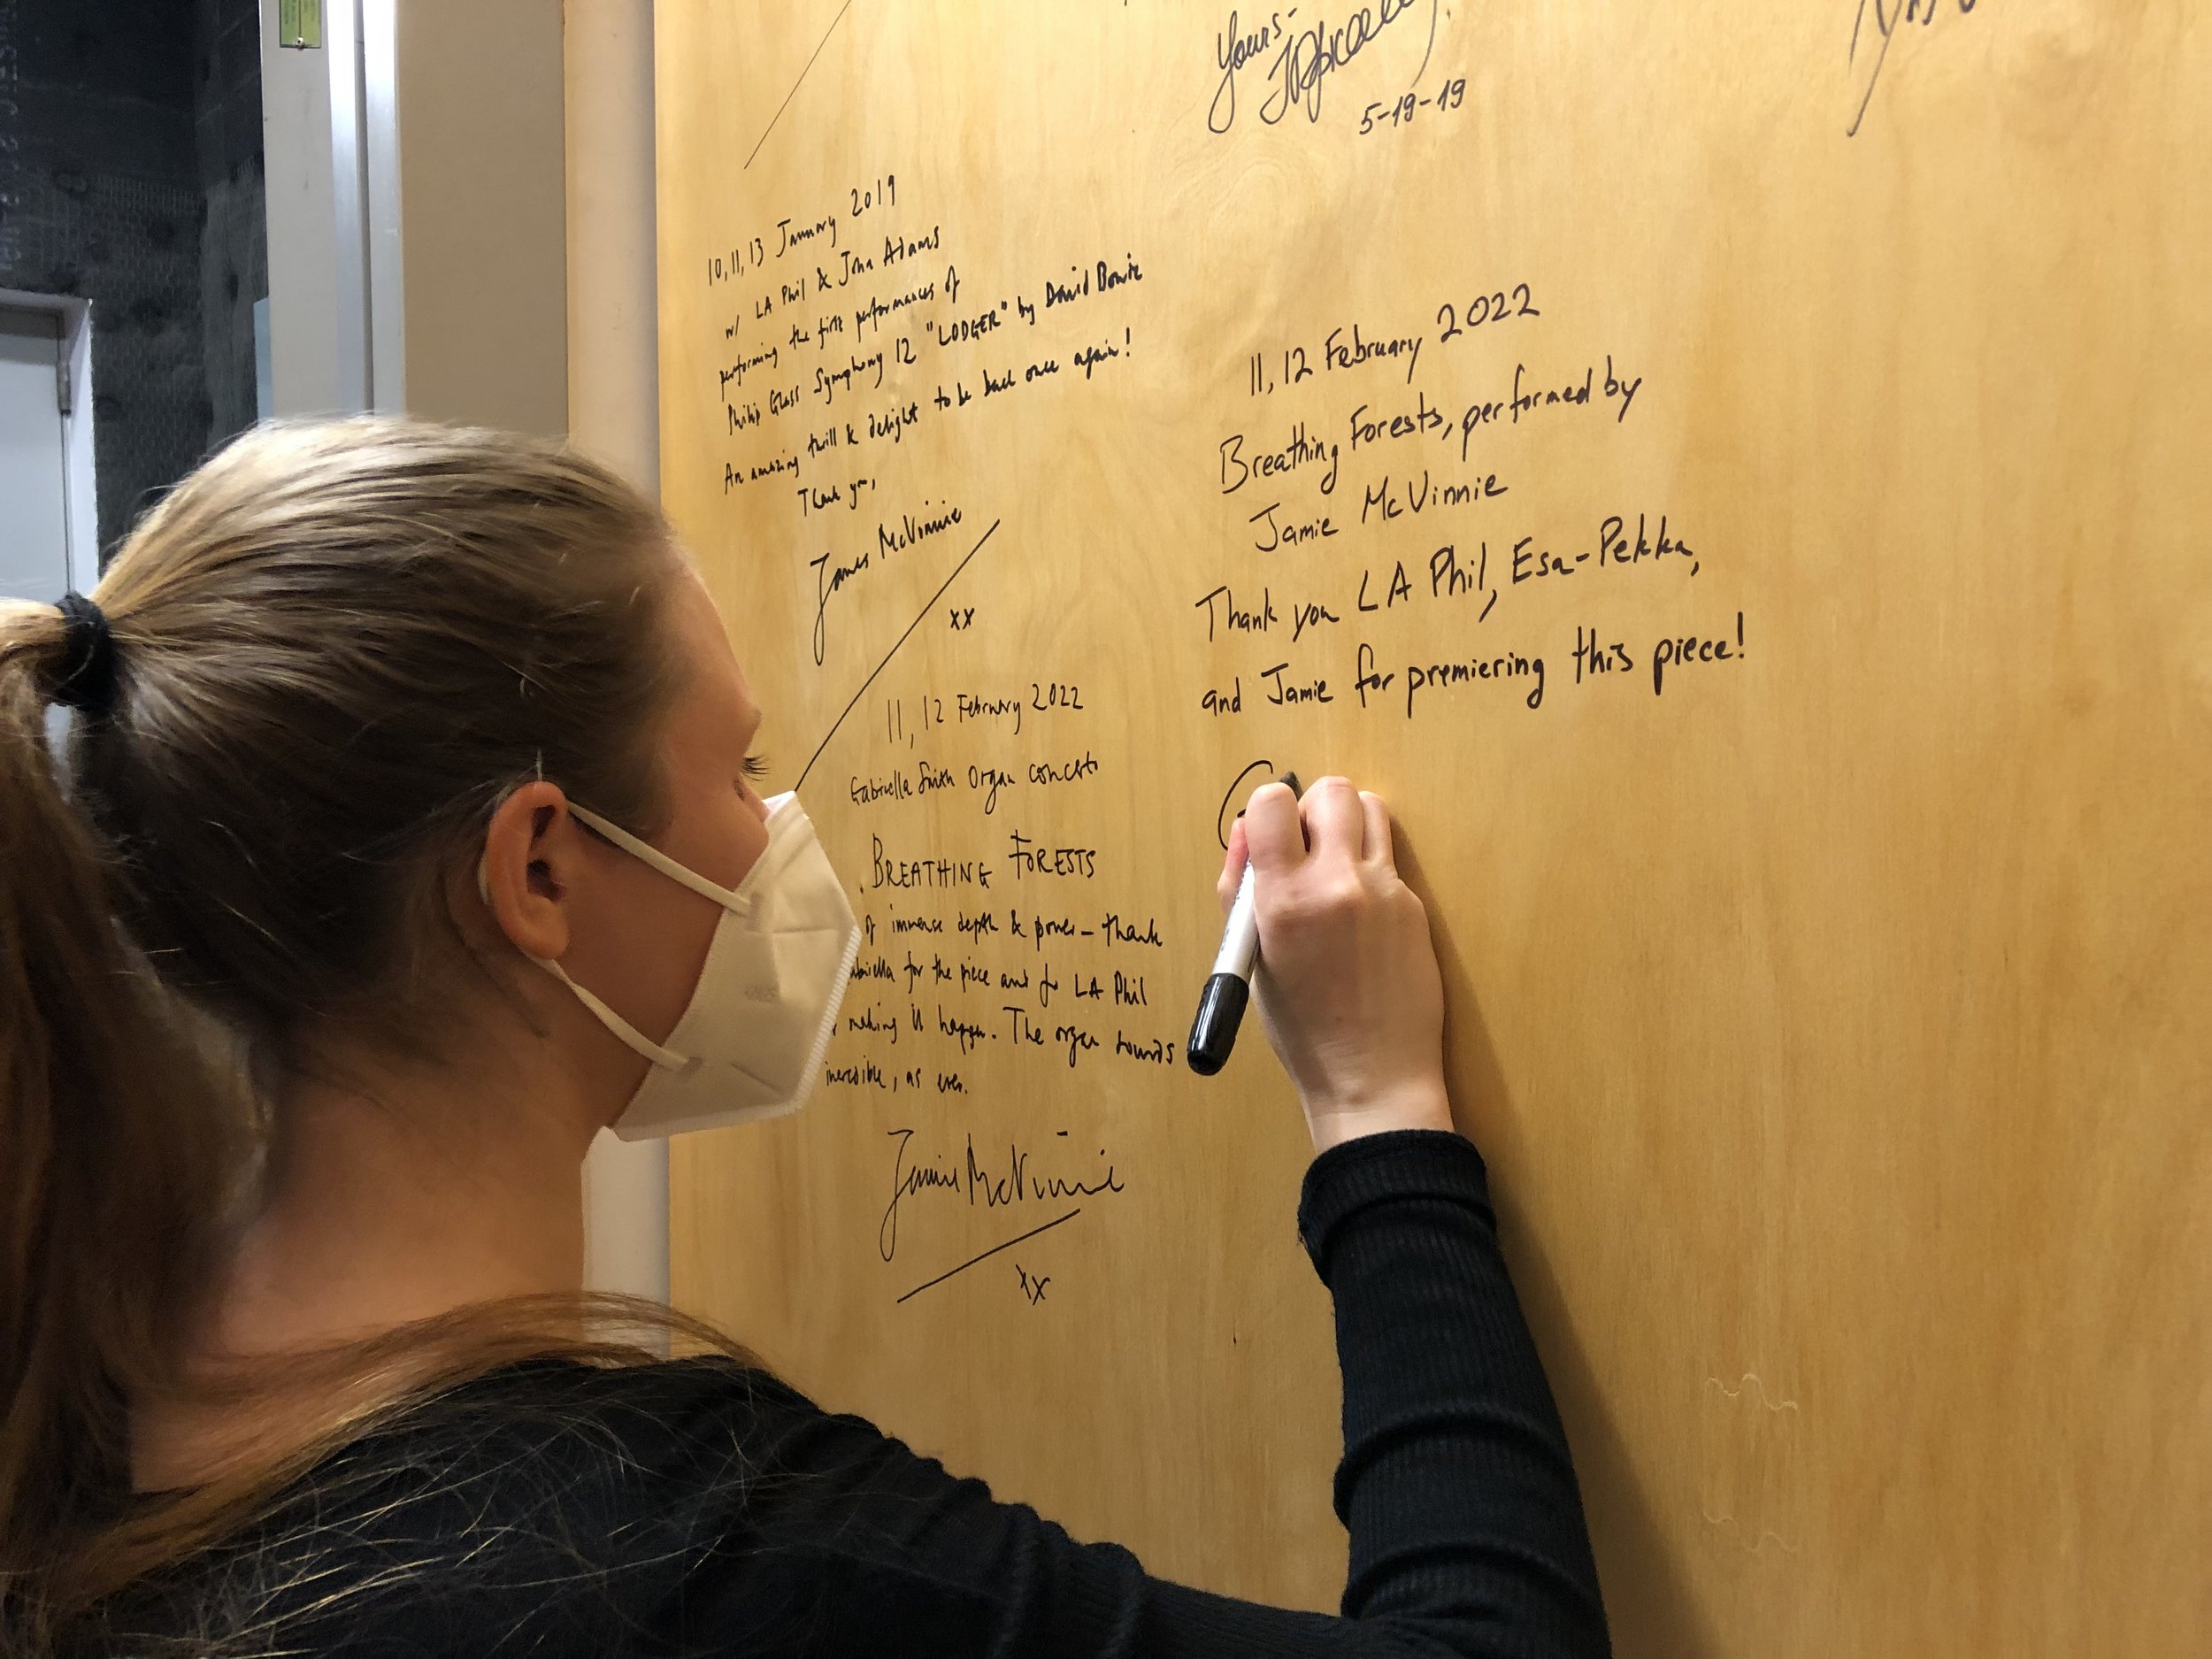 Yours-
5-19-19
10, 11, 13 January 2019
w/ LA Phil & John Adams
performing the first performances of
Philip Glass Symphony 12 "LODGER" by David Bowie
An amazing thrill & delight to be back once again!
Thank you,
James McVinnie
xx
11, 12 February 2022
Gabriella Smith Organ concerto
BREATHING FORESTS
of immense depth & power - thank
for the piece and for LA Phil
making it happen. The organ sounds
incredible, as ever.
Jamie McVinnie
xx
11, 12 February 2022
Breathing Forests, performed by
Jamie McVinnie
Thank you LA Phil, Esa-Pekka,
and Jamie for premiering this piece!
G